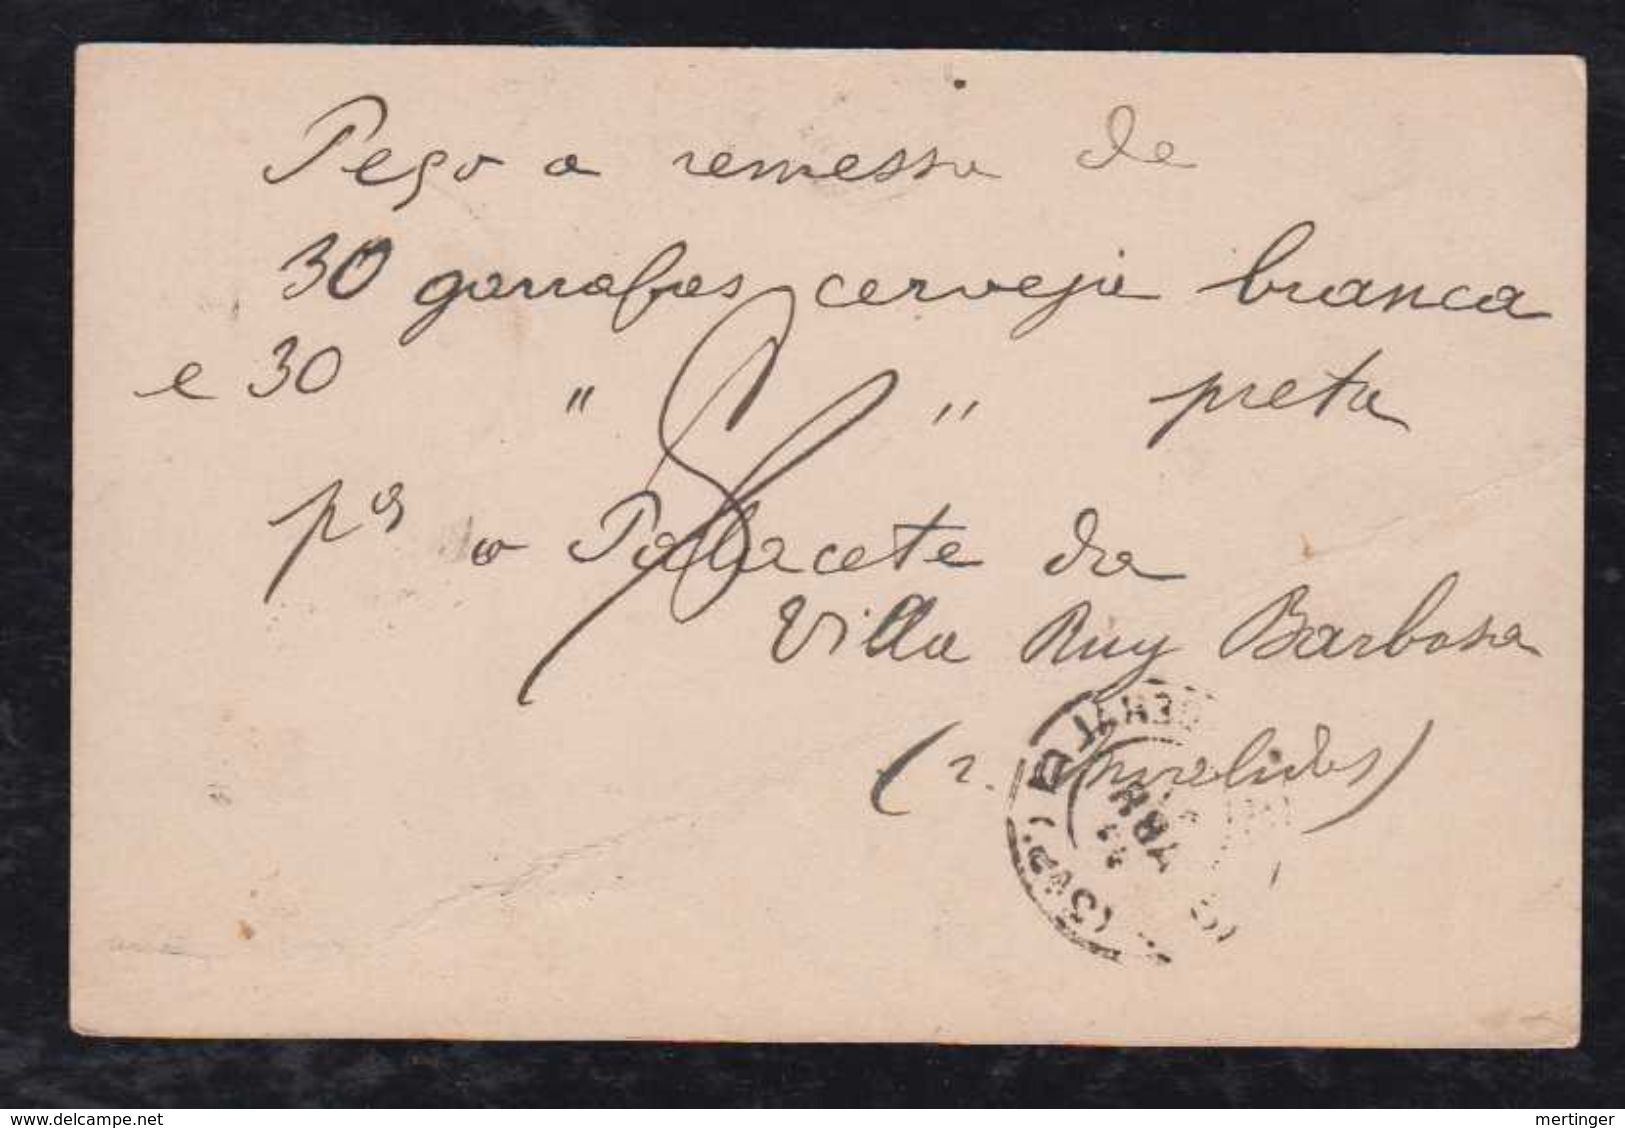 Peço a remessa de
30 garrafas cerveja branca
e 30 " " preta
pª o Pallacete da
Villa Ruy Barbosa
(r. Invalidos)
www.delcampe.net
mertinger